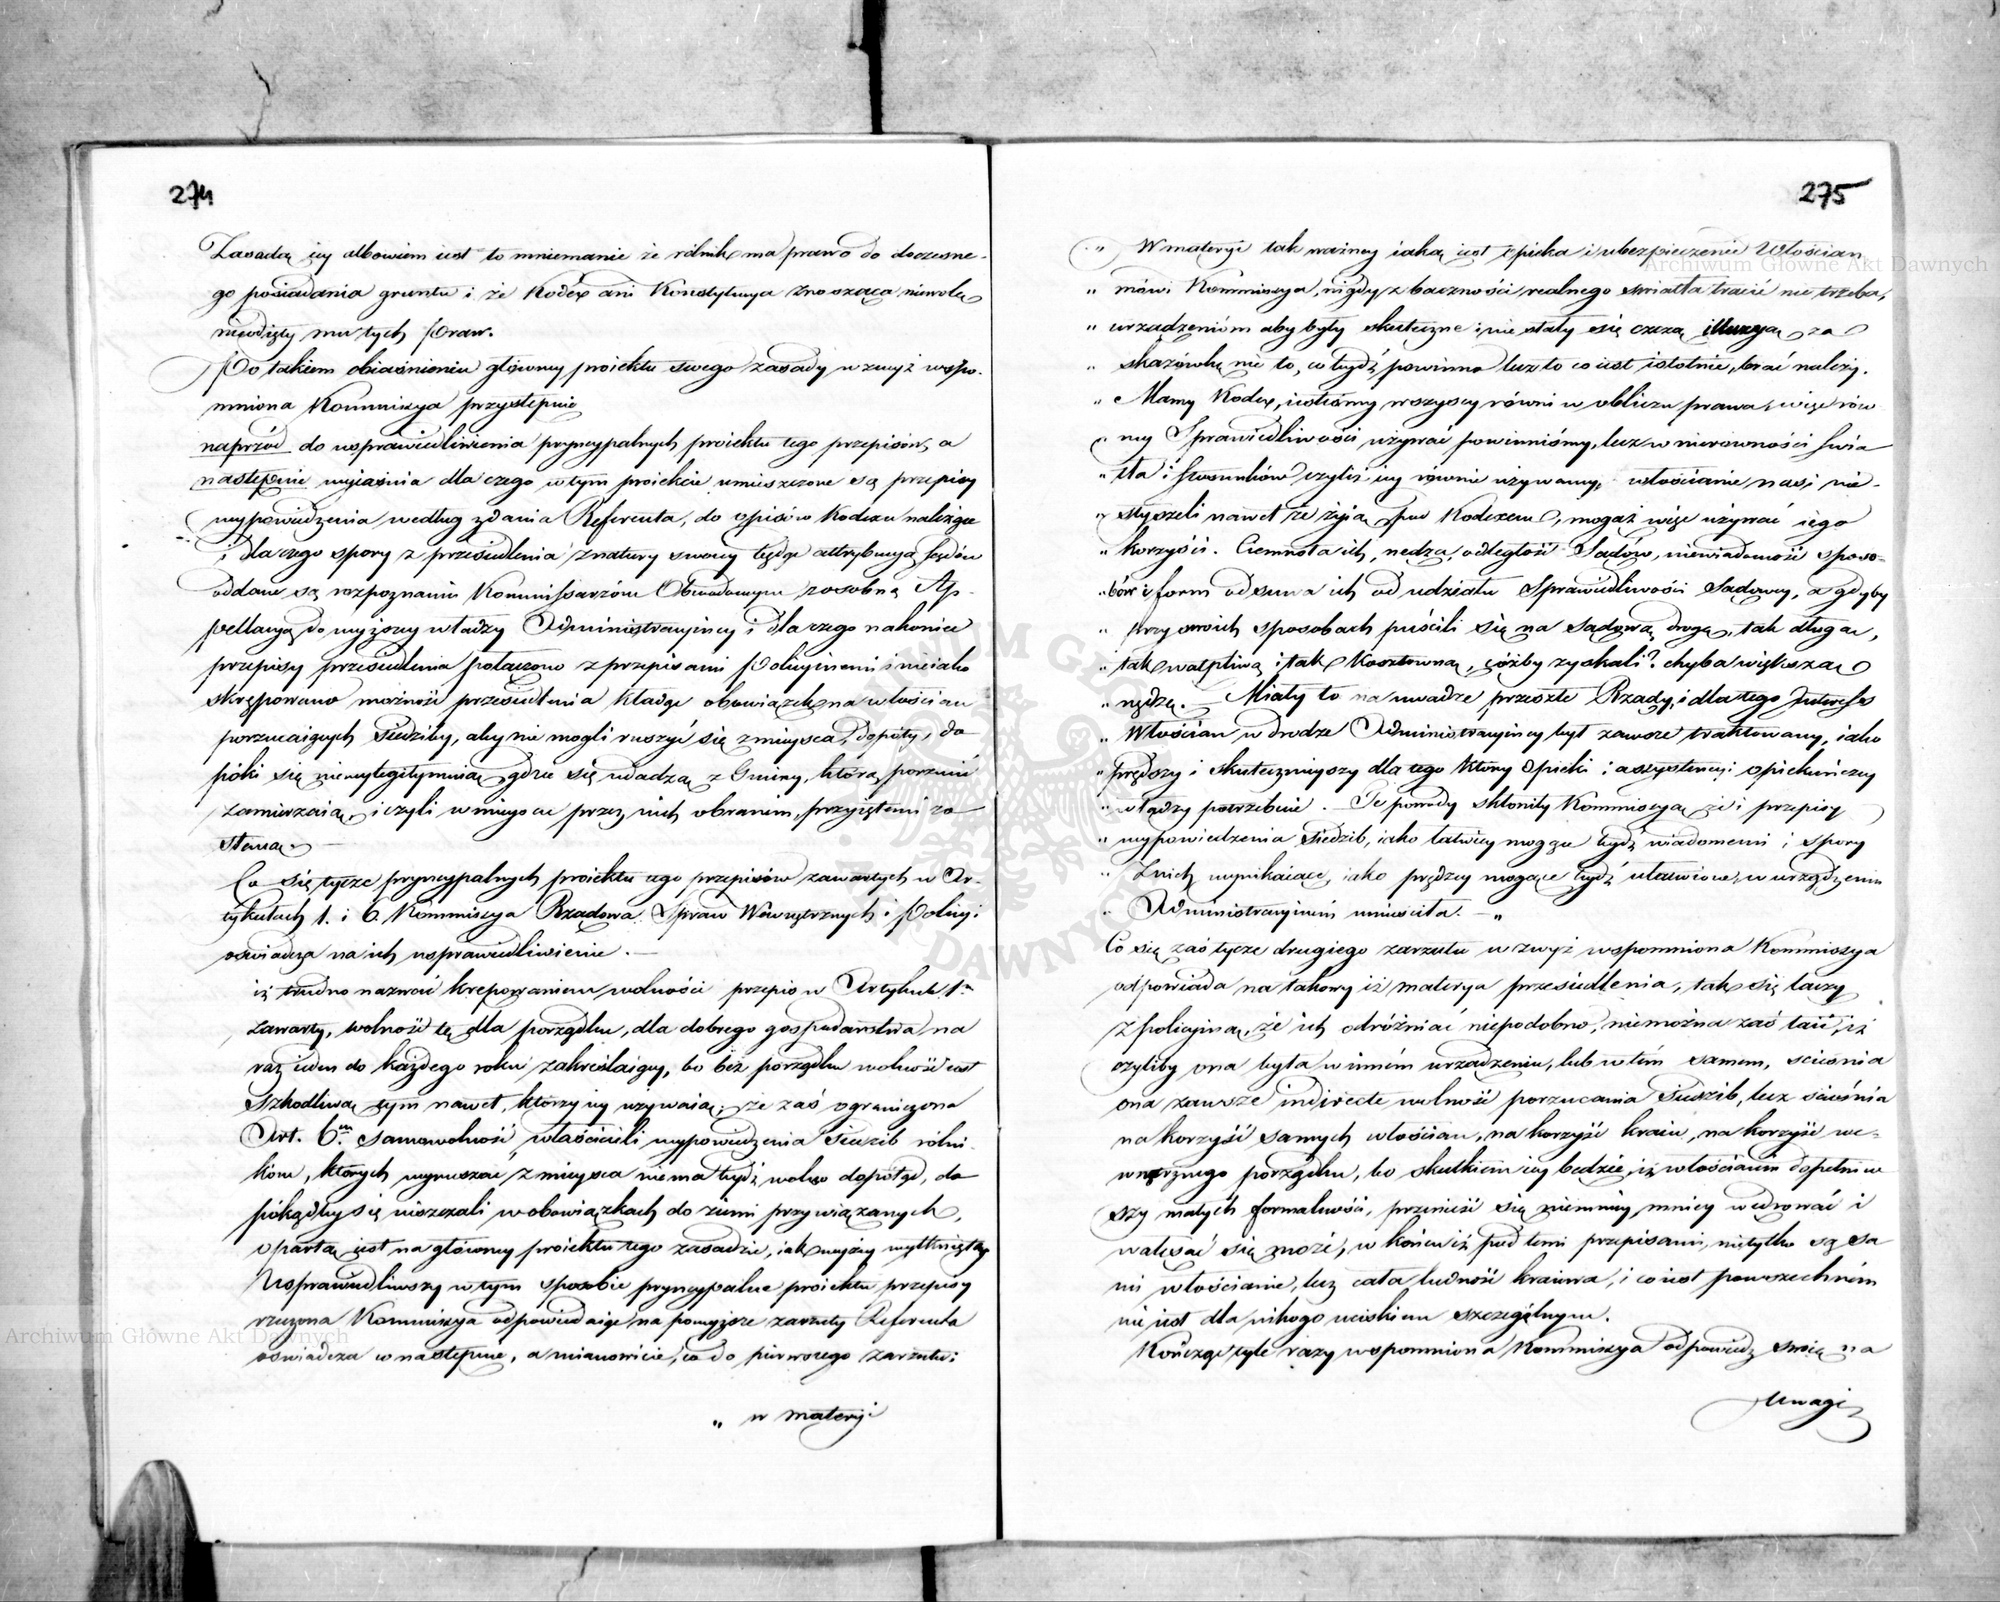 274
Zasadą iey albowiem iest to mniemanie że rolnik ma prawo do doczesne-
go posiadania gruntu i że Kodex ani Konstytucya znosząca niewolę
nieodięły mu tych praw.
Po takiem obiaśnieniu główney proiektu swego zasady wzwyż wspo-
mniona Kommissya przystępuie
naprzód do usprawiedliwienia pryncypalnych proiektu tego przepisów, a
następnie wyiaśnia dla czego w tym proiekcie umieszczone są przepisy
wypowiedzenia według zdania Referenta, do opisów Kodexu należące
i dla czego spory z przesiedlenia z natury swoiey będąc attrybucyą sądów
oddane są rozpoznaniu Kommissarzów Obwodowym z osobną Ap-
pellacyą do wyższey władzy Administracyiney i dla czego nakoniec
przepisy przesiedlenia połączono z przepisami Policyinemi i nieiako
skrępowano możność przesiedlenia kładąc obowiązek na włościan
porzucaiących siedziby, aby nie mogli ruszyć się z mieysca, dopóty, do
póki się niewylegitymuią, gdzie się udadzą z Gminy, którą porzucić
zamierzaią, i czyli w mieyscu przez nich obranem, przyiętemi zo
staną. —
Co się tycze pryncypalnych proiektu tego przepisów zawartych w Ar-
tykułach 1. i 6. Kommissya Rządowa Spraw Wewnętrznych i Policyi
oświadcza na ich usprawiedliwienie. —
iż trudno nazwać krępowaniem wolności przepis w Artykule 1m
zawarty, wolność tę dla porządku, dla dobrego gospodarstwa na
raz ieden do każdego roku zakreślaiący, bo bez porządku wolność iest
szkodliwą tym nawet, którzy iey używaią; że zaś ograniczona
Art. 6m samowolność właścicieli wypowiedzenia siedzib rolni-
kom, których wyruszać z mieysca niema bydź wolno dopóty, do
pókądby się uiszczali w obowiązkach do ziemi przywiązanych,
opartą iest na główney proiektu tego zasadzie, iak wyżey wytknięto
Usprawiedliwszy w tym sposobie pryncypalne proiektu przepisy
rzeczona Kommissya odpowiadaiąc na powyższe zarzuty Referenta
oświadcza w następnie, a mianowicie, co do pierwszego zarzutu:
„ w materyi
275
„ W materyi tak ważney iaką iest opieka i ubezpieczenie Włościan
„ mówi Kommissya, nigdy z baczności realnego światła tracić nie trzeba,
„ urządzeniom aby były skuteczne i nie stały się czczą illuzyą, za
„ skazówkę nie to, co bydź powinno lecz to co iest istotnie, brać należy.
„ Mamy Kodex, iesteśmy wszyscy równi w obliczu prawa, więc rów
„ ney Sprawiedliwości używać powinniśmy, lecz w nierówności świa
„ tła i stosunków czyliż iey równie używamy, włościanie nasi nie-
„ słyszeli nawet że żyią pod Kodexem, mogąż więc używać iego
„ korzyści. Ciemnota ich, nędza, odległość Sądów, niewiadomość sposo-
„ bów i form odsuwa ich od udziału Sprawiedliwości Sądowey, a gdyby
„ przy swoich sposobach puścili się na sądową drogę, tak długą,
„ tak wątpliwą i tak kosztowną, cóżby zyskali? chyba większą
„ nędzę. — Miały to na uwadze przeszłe Rządy, i dla tego Interess
„ Włościan w drodze Administracyiney był zawsze traktowany, iako
„ prędszy i skutecznieyszy dla tego który opieki i assystencyi opiekuńczey
„ władzy potrzebuie. — Te powody skłoniły Kommissyą, że i przepisy
„ wypowiedzenia siedzib, iako łatwiey mogące bydź wiadomemi i spory
„ z nich wynikaiące, iako prędzey mogące bydź ułatwione, w urządzeniu
„ Administracyinem umieściła. — „
Co się zaś tycze drugiego zarzutu wzwyż wspomniona Kommissya
odpowiada na takowy iż materya przesiedlenia, tak się łączy
z policyiną, że ich odróżniać niepodobno, niemożna zaś taić, iż
czyliby ona była w innem urządzeniu, lub w tem samem, ścieśnia
ona zawsze indirecte wolność porzucania siedzib, lecz ścieśnia
na korzyść samych włościan, na korzyść kraiu, na korzyść we-
wnętrznego porządku, bo skutkiem iey będzie, iż włościanin dopełniw
szy małych formalności, przenieść się niemniey, mniey wędrować i
wałęsać się może, w końcu iż pod temi przepisami, nietylko są sa
mi włościanie, lecz cała ludność kraiowa, i co iest powszechnem
nie iest dla nikogo uciskiem szczególnym.
Kończąc tyle razy wspomniona Kommissya odpowiedź swoią na
Uwagi